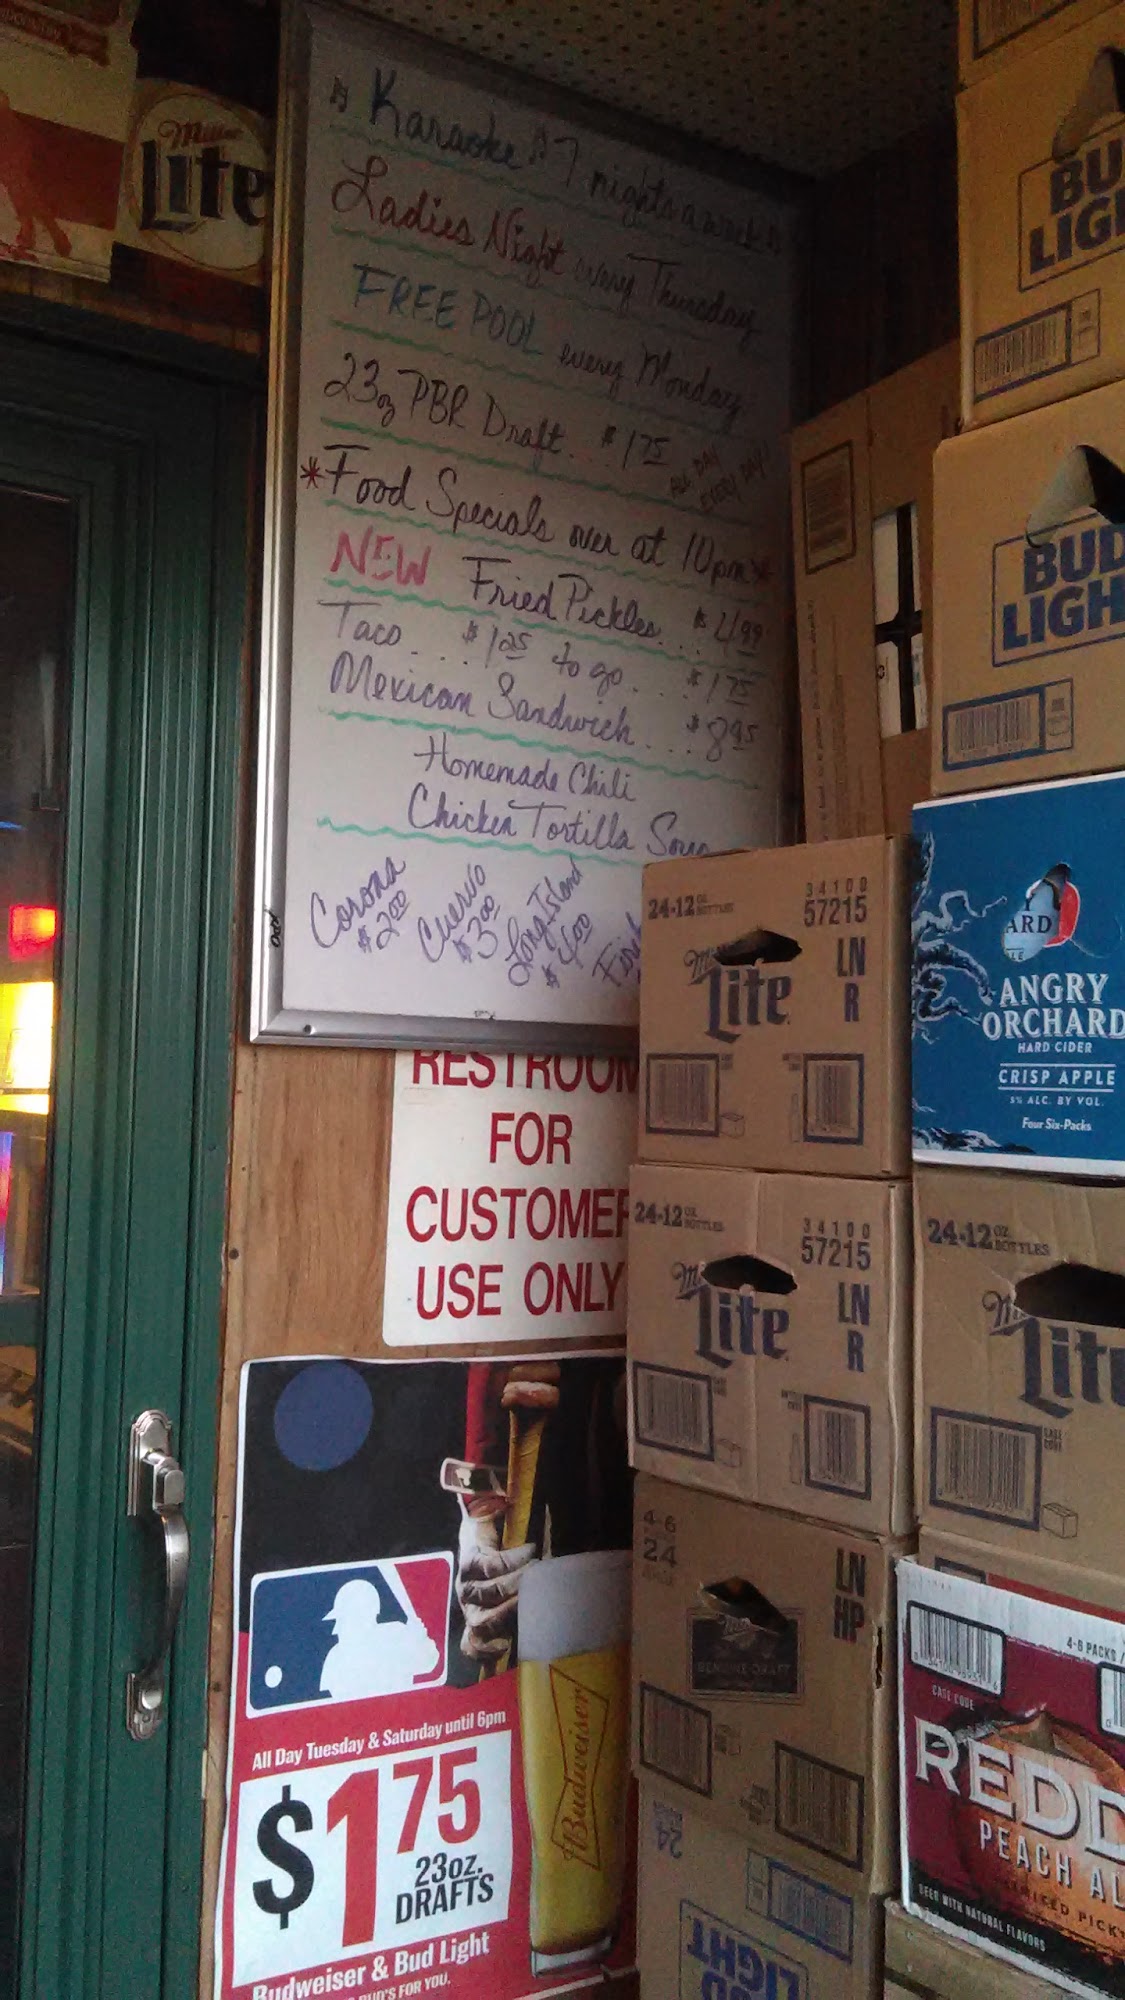 Miller
Lite
Karaoke 7 nights a week
Ladies Night every Thursday
FREE POOL every Monday
23oz PBR Draft.. $1.75 ALL DAY
EVERY DAY!
*Food Specials over at 10pm*
NEW Fried Pickles... $4.99
Taco.... $1.25 to go.... $1.75
Mexican Sandwich... $8.95
Homemade Chili
Chicken Tortilla Soup
Corona
$2.00
Cuervo
$3.00
Long Island
$4.00
RESTROOM
FOR
CUSTOMER
USE ONLY
All Day Tuesday & Saturday until 6pm
$1.75
23oz.
DRAFTS
Budweiser
Budweiser & Bud Light
BUD'S FOR YOU.
BUD
LIGHT
BUD
LIGHT
ARD
ANGRY
ORCHARD
HARD CIDER
CRISP APPLE
5% ALC. BY VOL.
Four Six-Packs
24-12 OZ BOTTLES
34100
57215
LN
R
Lite
24-12 OZ BOTTLES
34100
57215
LN
R
Lite
24-12 OZ BOTTLES
Lite
CASE CODE
4-6
24
LN
HP
GENUINE DRAFT
24
LIGHT
4-6 PACKS /
CASE CODE
REDD
PEACH AL
BEER WITH NATURAL FLAVORS